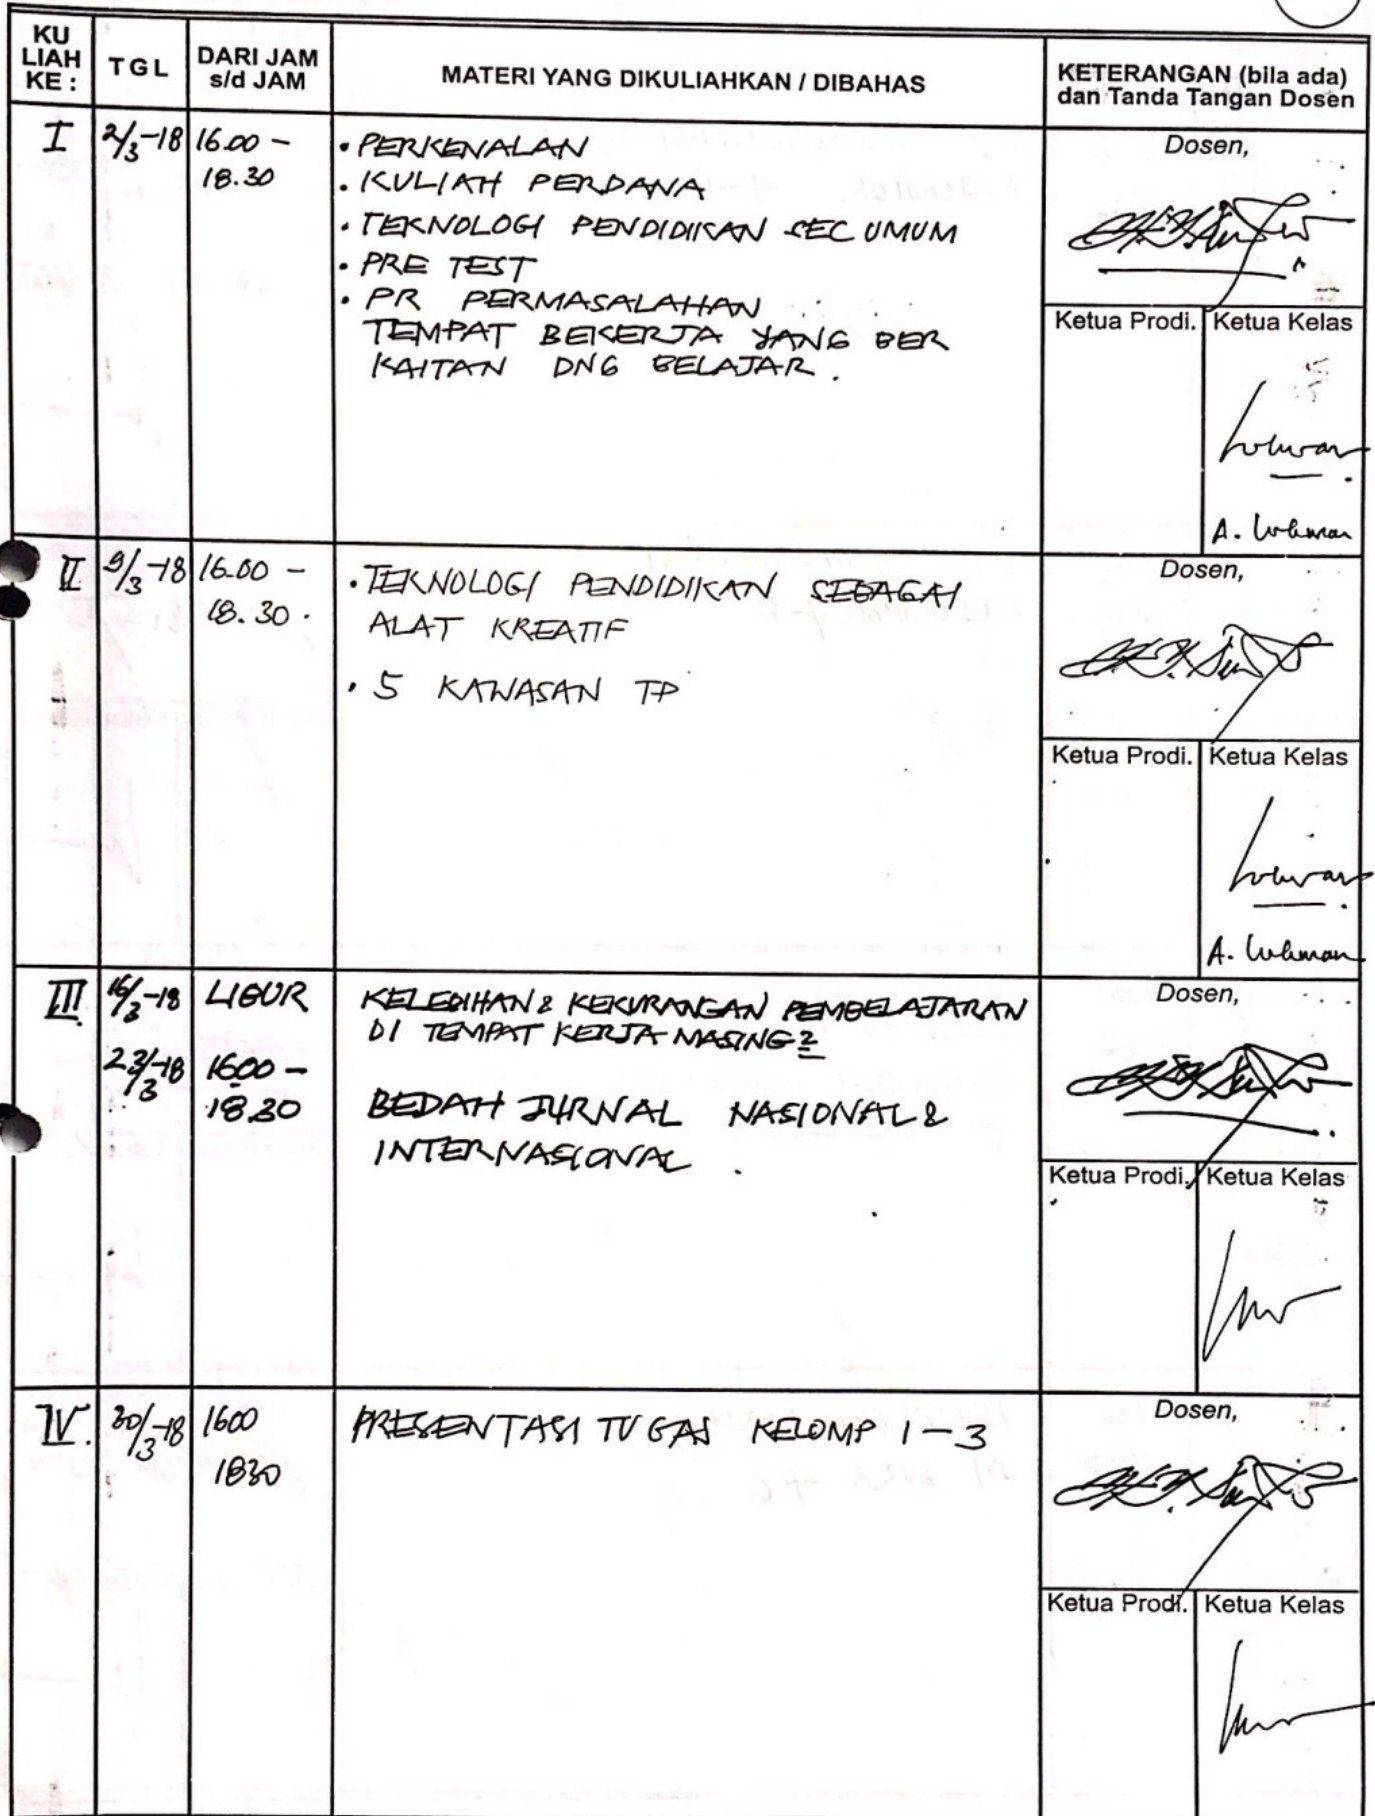 KU LIAH KE :
TGL
DARI JAM s/d JAM
MATERI YANG DIKULIAHKAN / DIBAHAS
KETERANGAN (bila ada) dan Tanda Tangan Dosen
I
2/3-18
16.00 -
18.30
• PERKENALAN
• KULIAH PERDANA
• TEKNOLOGI PENDIDIKAN SEC UMUM
• PRE TEST
• PR PERMASALAHAN
TEMPAT BEKERJA YANG BER
KAITAN DNG BELAJAR.
Dosen,
Ketua Prodi.
Ketua Kelas
A. Lukman
II
9/3-18
16.00 -
18.30.
• TEKNOLOGI PENDIDIKAN SEBAGAI
ALAT KREATIF
• 5 KAWASAN TP
Dosen,
Ketua Prodi.
Ketua Kelas
A. Lukman
III
16/3-18
LIBUR
KELEBIHAN & KEKURANGAN PEMBELAJARAN
DI TEMPAT KERJA MASING2
23/3-18
1600 -
18.30
BEDAH JURNAL NASIONAL &
INTERNASIONAL.
Dosen,
Ketua Prodi.
Ketua Kelas
IV.
30/3-18
1600
1830
PRESENTASI TUGAS KELOMP 1-3
Dosen,
Ketua Prodi.
Ketua Kelas